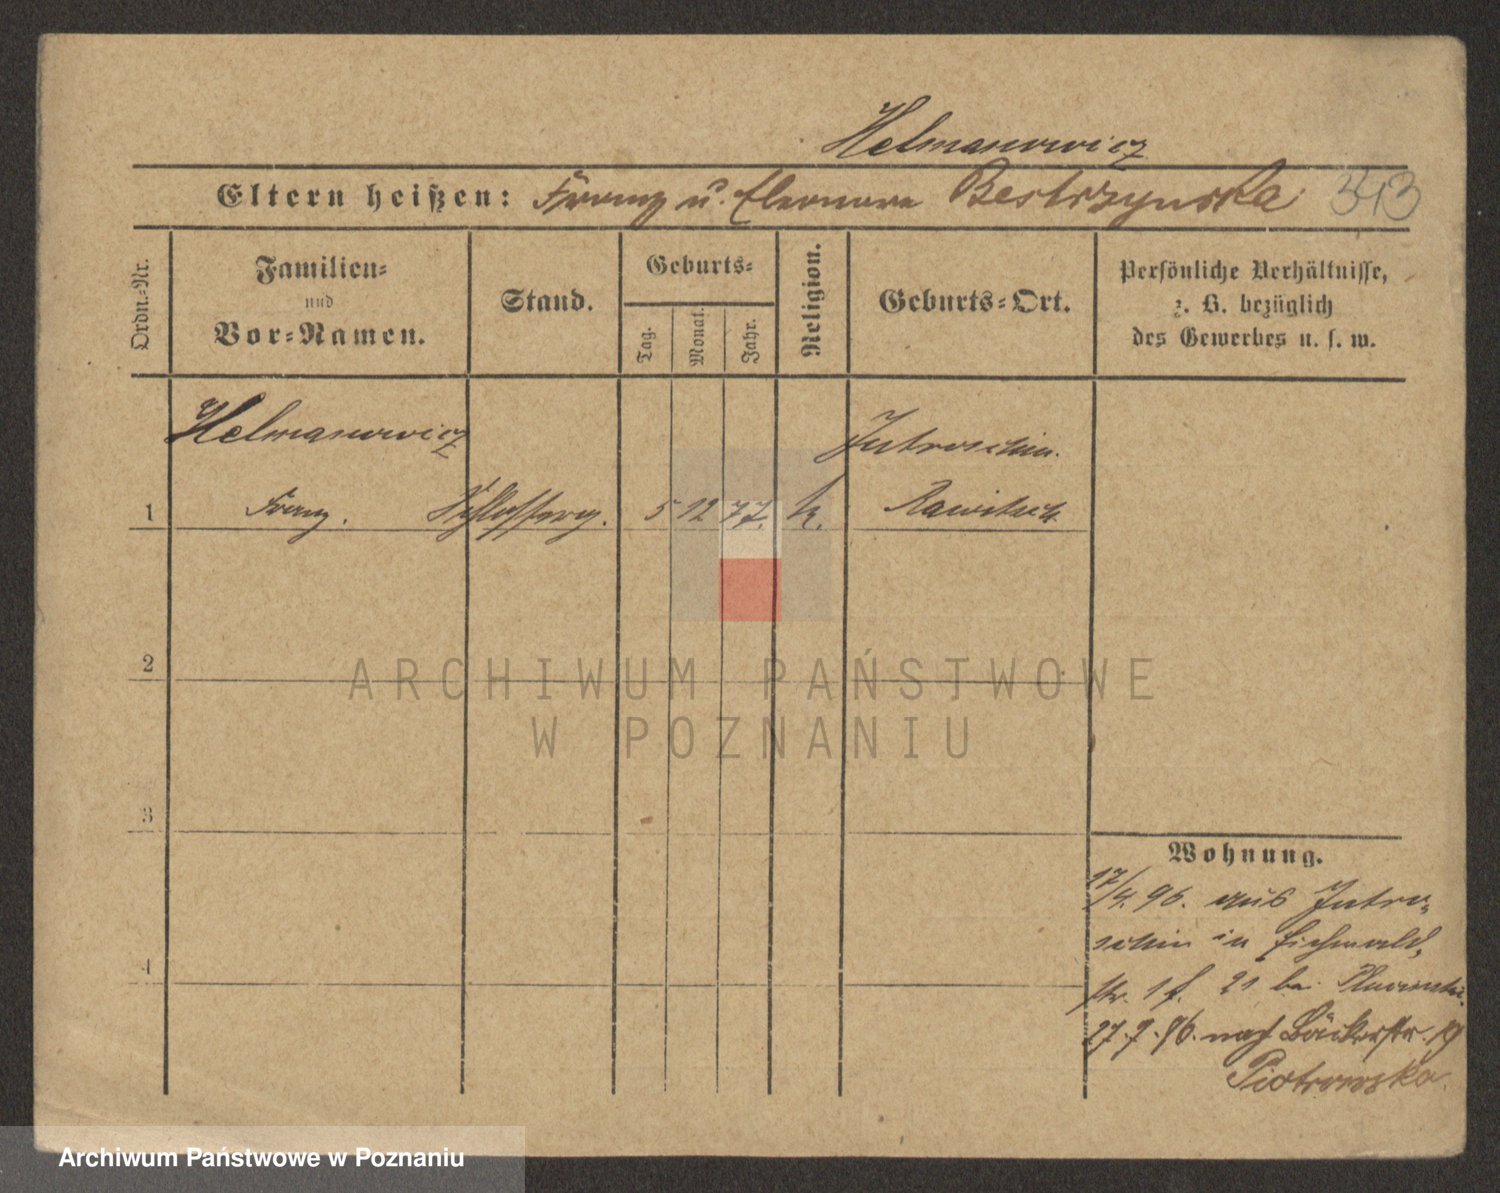 Helmanowicz
Eltern heißen: Franz u. Eleonore Bestrzynska 343
Ordn.-Nr.
Familien-
und
Vor-Namen.
Stand.
Geburts-
Tag.
Monat.
Jahr.
Religion.
Geburts-Ort.
Persönliche Verhältnisse,
z. B. bezüglich
des Gewerbes u. s. w.
Helmanowicz Jutroschin.
1 Franz. 5 12 77. k. Rawitsch
2
3
4
Wohnung.
17/4. 96. aus Jutro-
schin in Eichwald-
str. 1 f. 21 bei
27.9.96. nach Bäckerstr. 19
Piotrowska
ARCHIWUM PAŃSTWOWE
W POZNANIU
Archiwum Państwowe w Poznaniu